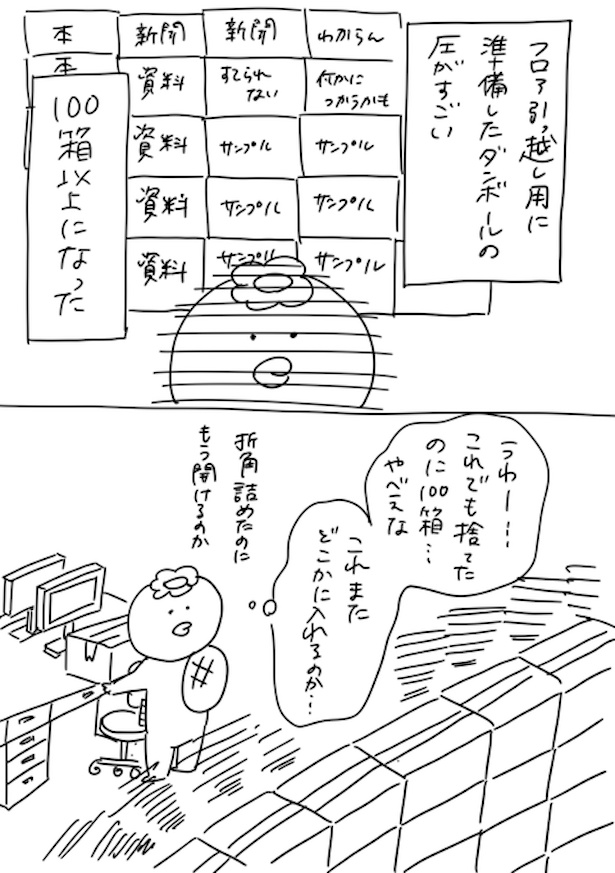 フロア引っ越し用に
準備したダンボールの
圧がすごい
本
新聞
新聞
わからん
本
資料
すてられ
ない
何かに
つかうかも
資料
サンプル
サンプル
資料
サンプル
サンプル
資料
サンプル
サンプル
100
箱以上になった
うわー…
これでも捨てた
のに100箱…
やべえな
これまた
どこかに入れるのか…
折角詰めたのに
もう開けるのか